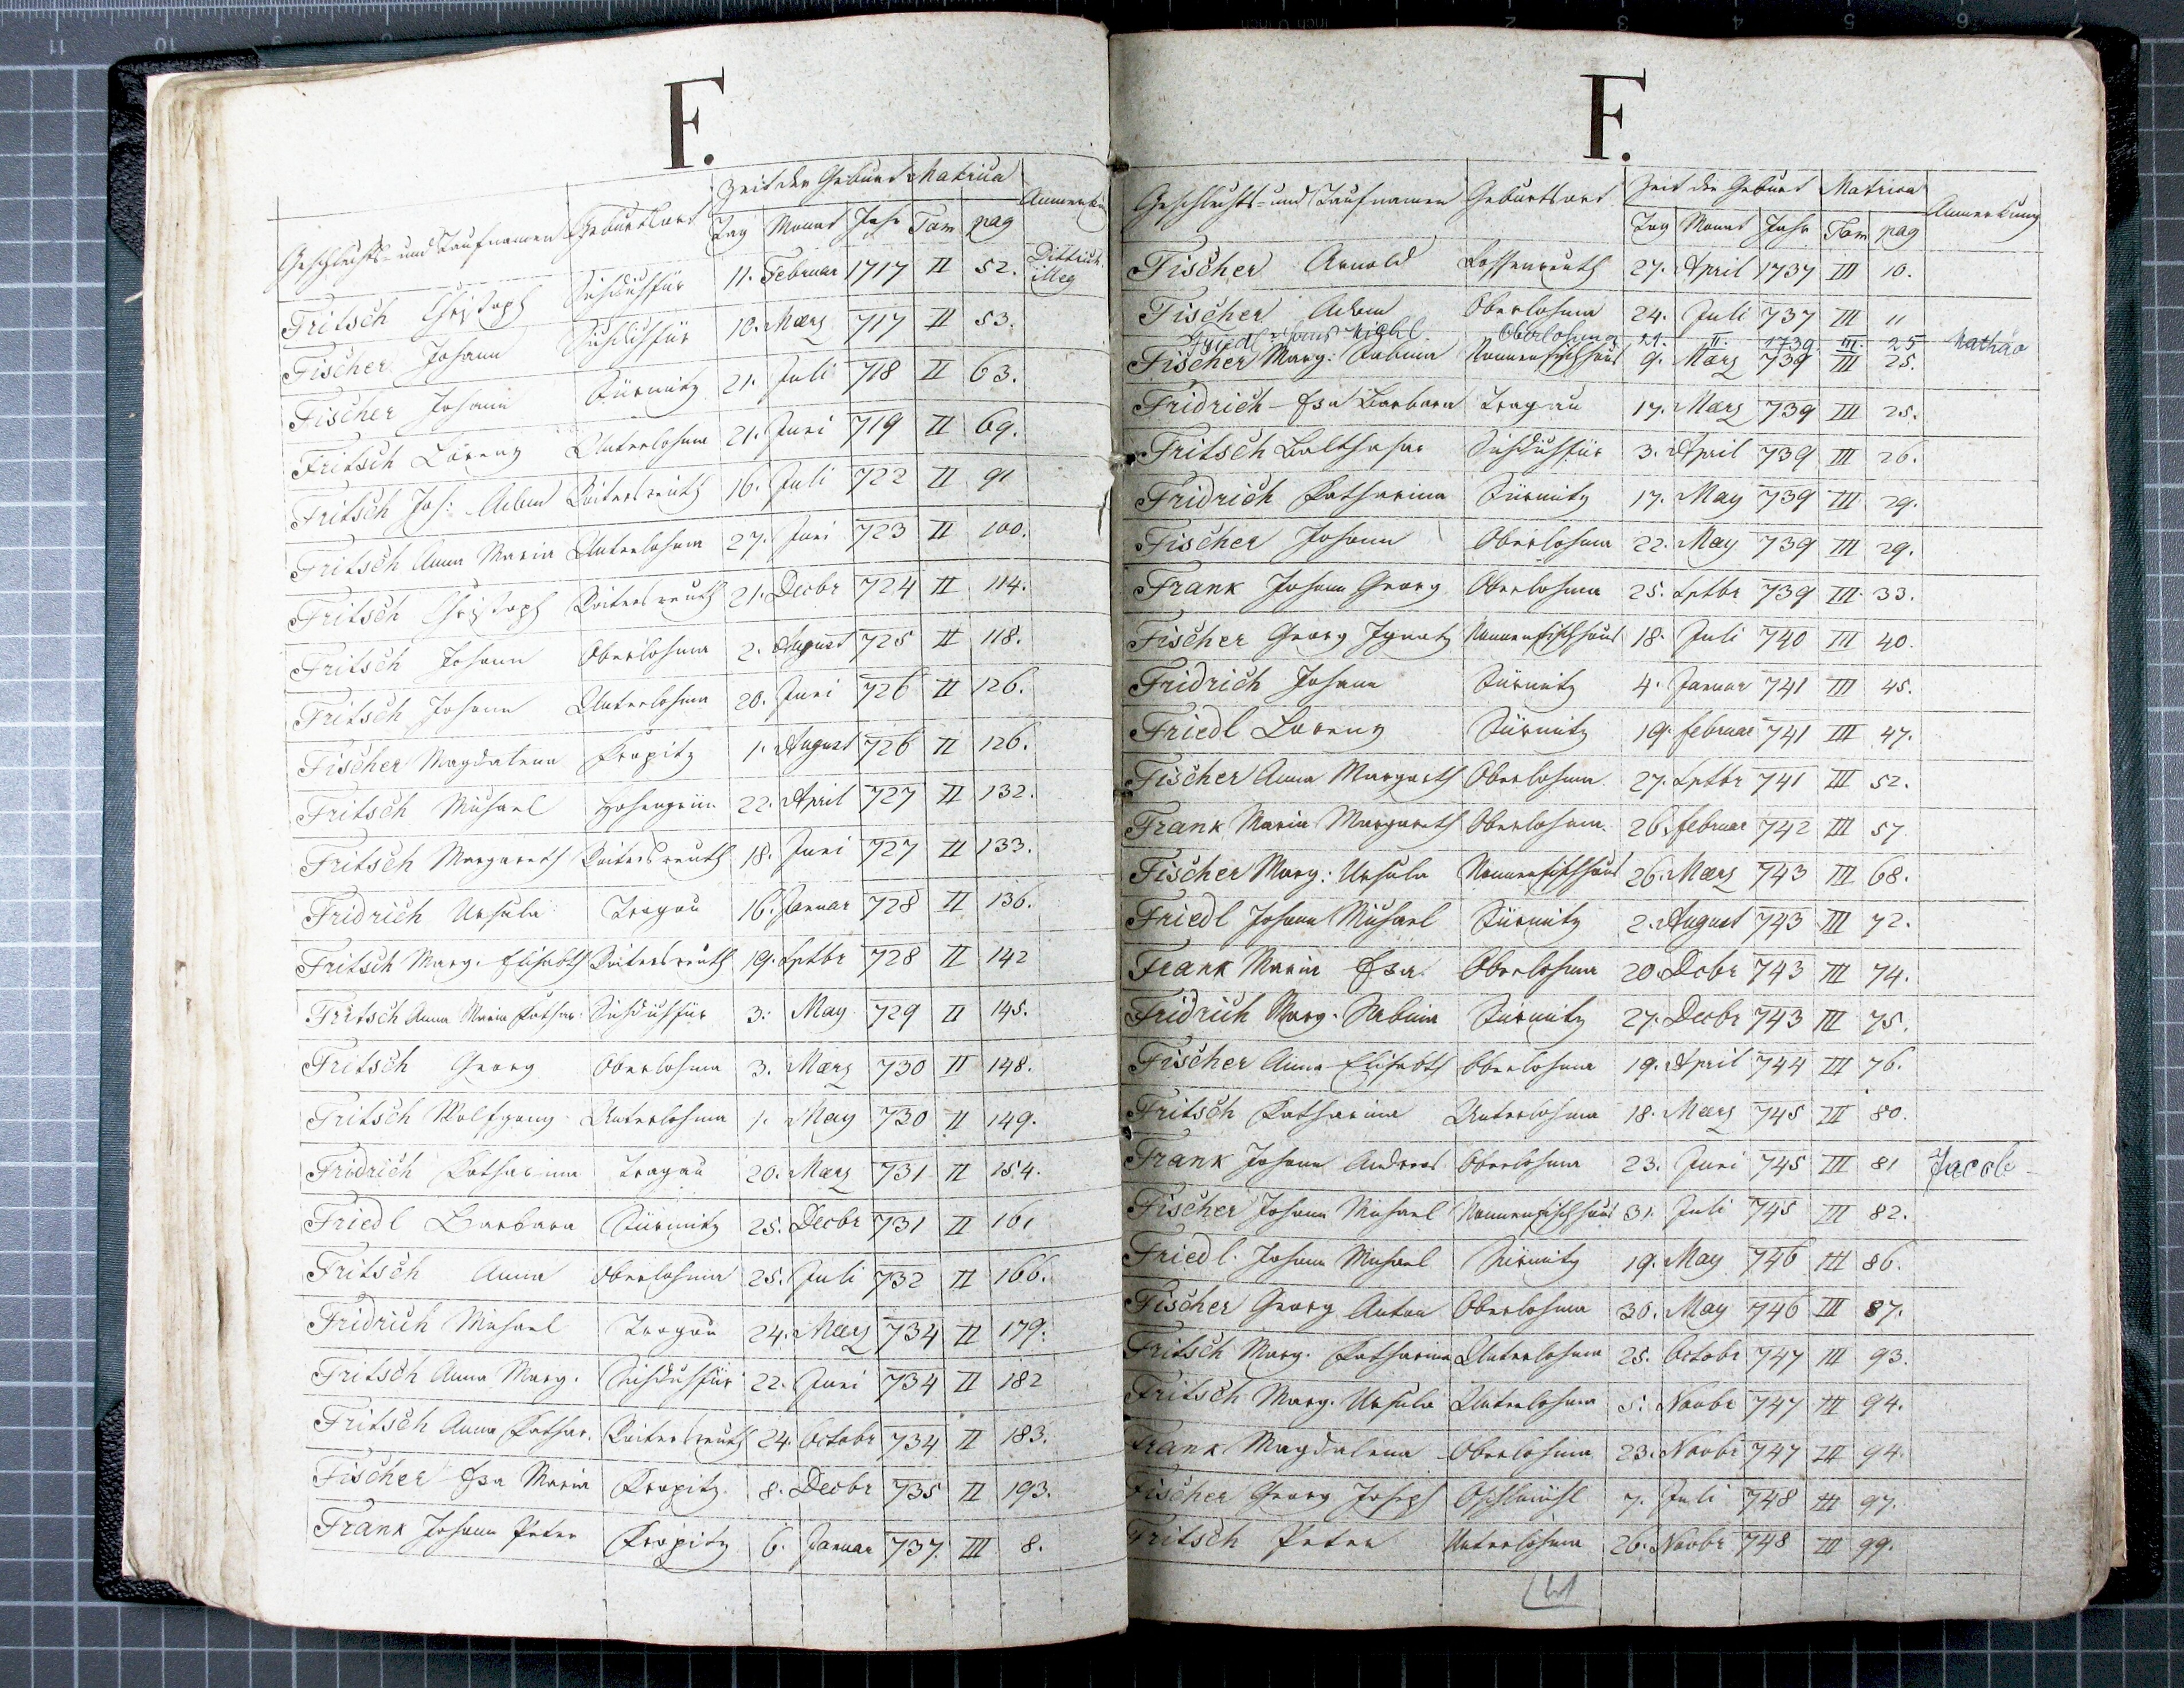 F.
Geschlechts- und Taufnamen Geburtsort Zeit der Geburt Matrica Anmerkun
Tag Monat Jahr Tom pag
Fritsch Christoph 11. Februar 1717 II 52. Dittrich illeg
Fischer Johann 10. Mærz 717 II 53.
Fischer Johann Zürnitz 21. Juli 718 II 63.
Fritsch Lorenz Unterlohma 21. Juni 719 II 69.
Fritsch Joh: Adam Reitersreuth 16. Juli 722 II 91
Fritsch Anna Maria Unterlohma 27. Juni 723 II 100.
Fritsch Christoph Reitersreuth 21. Decbr 724 II 114.
Fritsch Johann Oberlohma 2. August 725 II 118.
Fritsch Johann Unterlohma 20. Juni 726 II 126.
Fischer Magdalena Kropitz 1. August 726 II 126.
Fritsch Michael 22. April 727 II 132.
Fritsch Margareth Reitersreuth 18. Juni 727 II 133.
Fridrich Ursula Tragau 16. Januar 728 II 136.
Fritsch Marg. Elisabeth Reitersreuth 19. Sptbr 728 II 142
Fritsch Anna Maria Kathar. 3. May 729 II 145.
Fritsch Georg Oberlohma 3. Mærz 730 II 148.
Fritsch Wolfgang Unterlohma 1. May 730 II 149.
Fridrich Katharina Tragau 20. Mærz 731 II 154.
Friedl Barbara Zürnitz 25. Decbr 731 II 161
Fritsch Anna Oberlohma 25. Juli 732 II 166.
Fridrich Michael Tragau 24. Mærz 734 II 179.
Fritsch Anna Marg. 22. Juni 734 II 182
Fritsch Anna Kathar. Reitersreuth 24. Octobr 734 II 183.
Fischer Eva Maria Kropitz 8. Decbr 735 II 193.
Frank Johann Peter Kropitz 6. Januar 737 III 8.
F.
Geschlechts- und Taufnamen Geburtsort Zeit der Geburt Matrica Anmerkung
Tag Monat Jahr Tom pag
Fischer Arnold Lossenreuth 27. April 1737 III 10.
Fischer Adam Oberlohma 24. Juli 737 III 11
Friedl Hans Michl. Oberlohma 21. II. 1739 III. 25
Fischer Marg: Sabina Nonnenfischhaus 9. Mærz 739 III 25.
Fridrich Eva Barbara Tragau 17. Mærz 739 III 25.
Fritsch Balthasar 3. April 739 III 26.
Fridrich Katharina Zürnitz 17. May 739 III 29.
Fischer Johann Oberlohma 22. May 739 III 29.
Frank Johann Georg Oberlohma 25. Sptbr 739 III 33.
Fischer Georg Ignatz Nonnenfischhaus 18. Juli 740 III 40.
Fridrich Johann Zürnitz 4. Januar 741 III 45.
Friedl Lorenz Zürnitz 19. februar 741 III 47.
Fischer Anna Margareth Oberlohma 27. Sptbr 741 III 52.
Frank Maria Margareth Oberlohma. 26. februar 742 III 57
Fischer Marg: Ursula Nonnenfischhaus 26. Mærz 743 III 68.
Friedl Johann Michael Zürnitz 2. August 743 III 72.
Frank Maria Eva Oberlohma 20. Dcbr 743 III 74.
Fridrich Marg. Sabina Zürnitz 27. Decbr 743 III 75.
Fischer Anna Elisabeth Oberlohma 19. April 744 III 76.
Fritsch Katharina Unterlohma 18. Mærz 745 III 80.
Frank Johann Andreas Oberlohma 23. Juni 745 III 81 Jacob
Fischer Johann Michael Nonnenfischhaus 31. Juli 745 III 82.
Friedl. Johann Michael Zürnitz 19. May 746 III 86.
Fischer Georg Anton Oberlohma 30. May 746 III 87.
Fritsch Marg. Katharina Unterlohma 25. Octobr 747 III 93.
Fritsch Marg. Ursula Unterlohma 5. Novbr 747 III 94.
Frank Magdalena Oberlohma 23. Novbr 747 III 94.
Fischer Georg Joseph 7. Juli 748 III 97.
Fritsch Peter Unterlohma 26. Novbr 748 III 99.